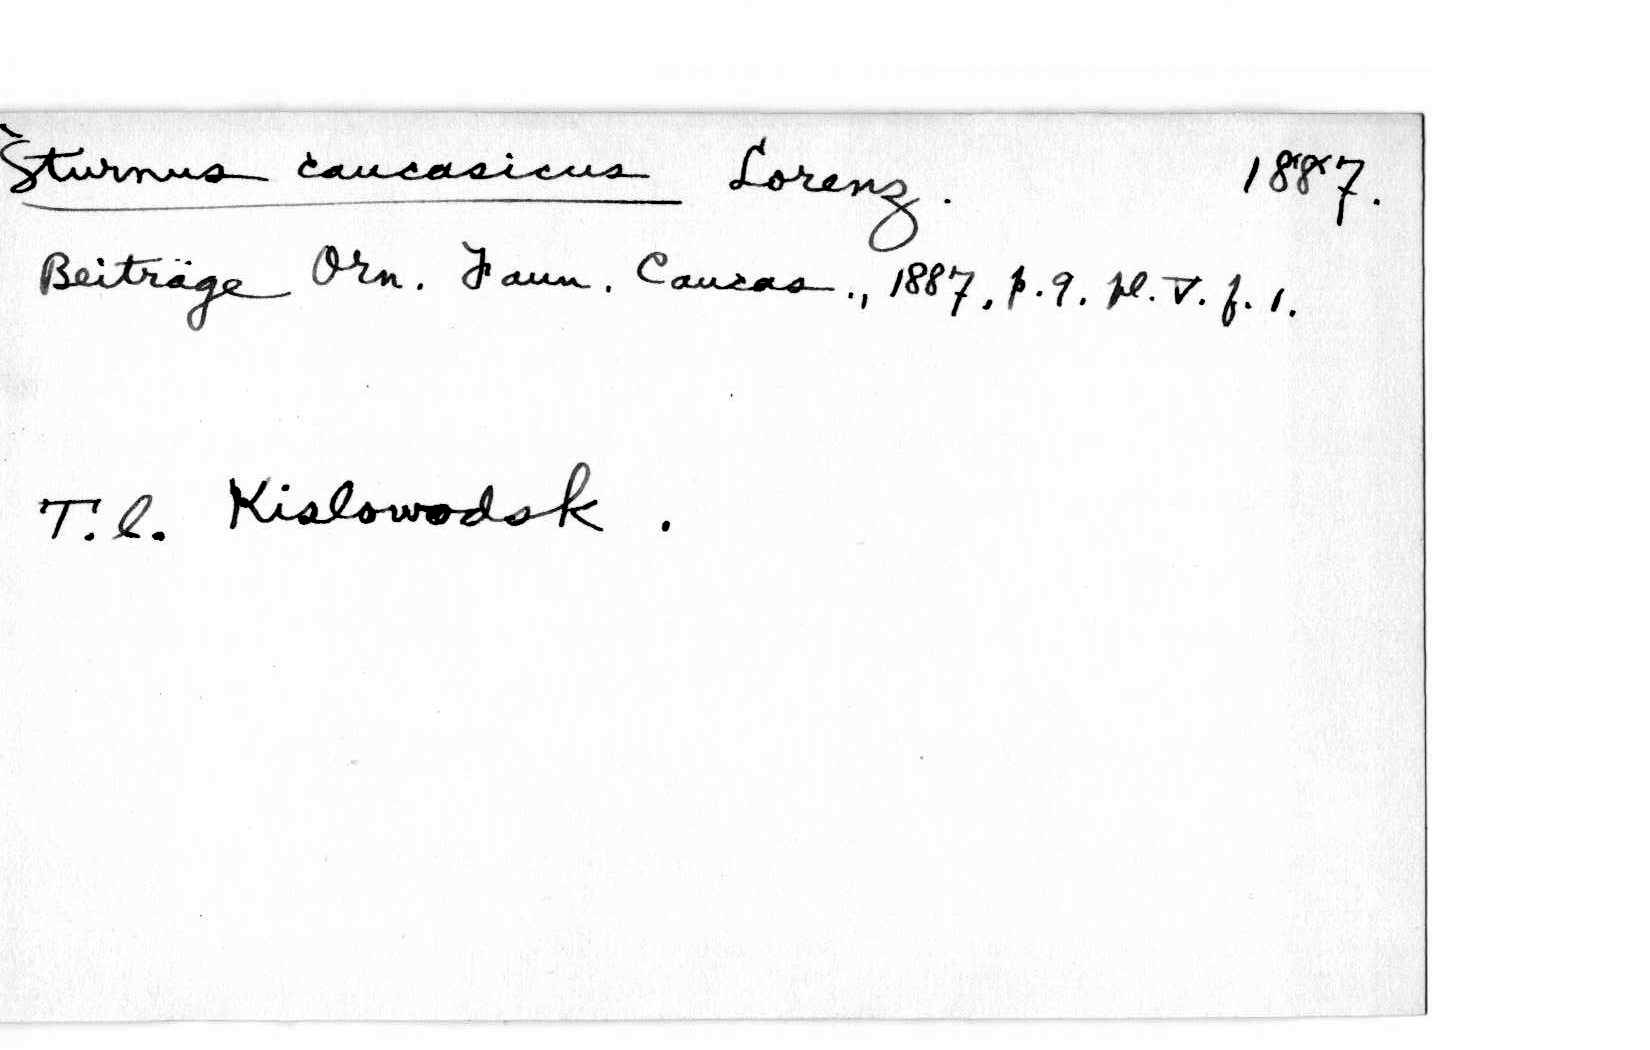 Sturnus caucasicus Lorenz. 1887.
Beiträge Orn. Faun. Caucas., 1887, p. 9. pl. V. f. 1.
T. l. Kislowodsk.